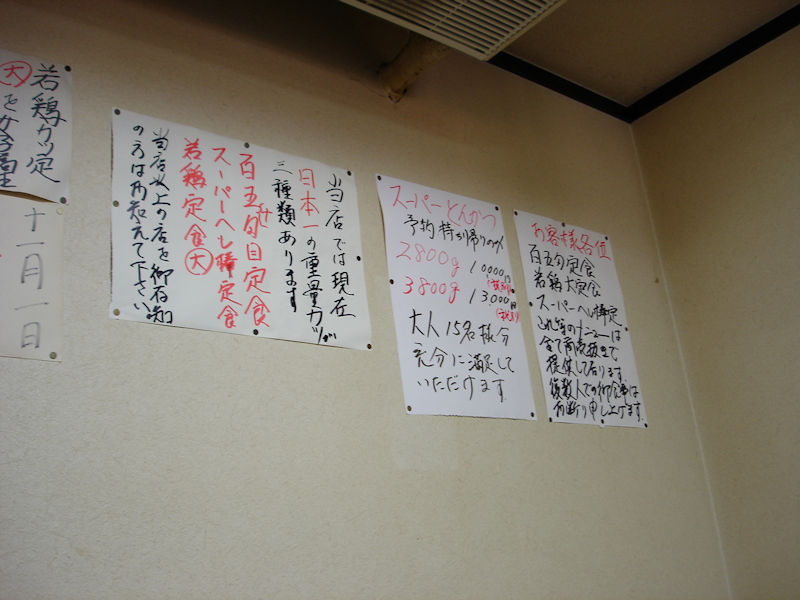 若鶏カツ定
大
十一月一日
当店では現在
日本一の重量カツが
三種類あります
百五匁目定食
スーパーヘレ棒定食
若鶏定食大
当店以上の店を御存知
の方はお教えて下さい
スーパーとんかつ
予約持ち帰りのみ
2800g 10000円
(税別)
3800g 13000円
(税別)
大人15名様分
充分に満足して
いただけます
お客様各位
百五匁定食
若鶏大定食
スーパーヘレ棒定
これらのメニューは
全て商売抜きで
提供して居ります
複数人での御食事は
お断り申し上げます